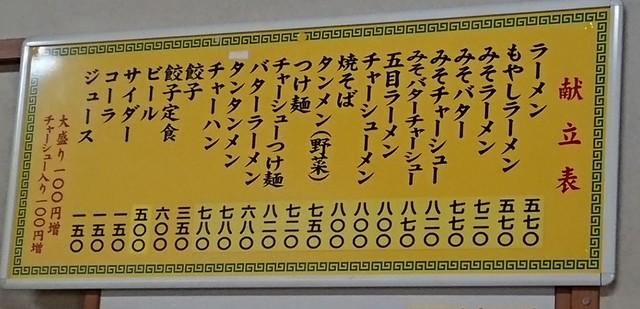 献立表
ラーメン 五七〇
もやしラーメン 五七〇
みそラーメン 七二〇
みそバター 七七〇
みそチャーシュー 八二〇
みそバターチャーシュー 八七〇
五目ラーメン 八〇〇
チャーシューメン 八〇〇
焼そば 八〇〇
タンメン(野菜) 七五〇
つけ麺 七二〇
チャーシューつけ麺 八二〇
バターラーメン 六八〇
タンタンメン 七八〇
チャーハン 七八〇
餃子 三五〇
餃子定食 六〇〇
ビール 五〇〇
サイダー 一五〇
コーラ 一五〇
ジュース 一五〇
大盛り 一〇〇円増
チャーシュー入り一〇〇円増